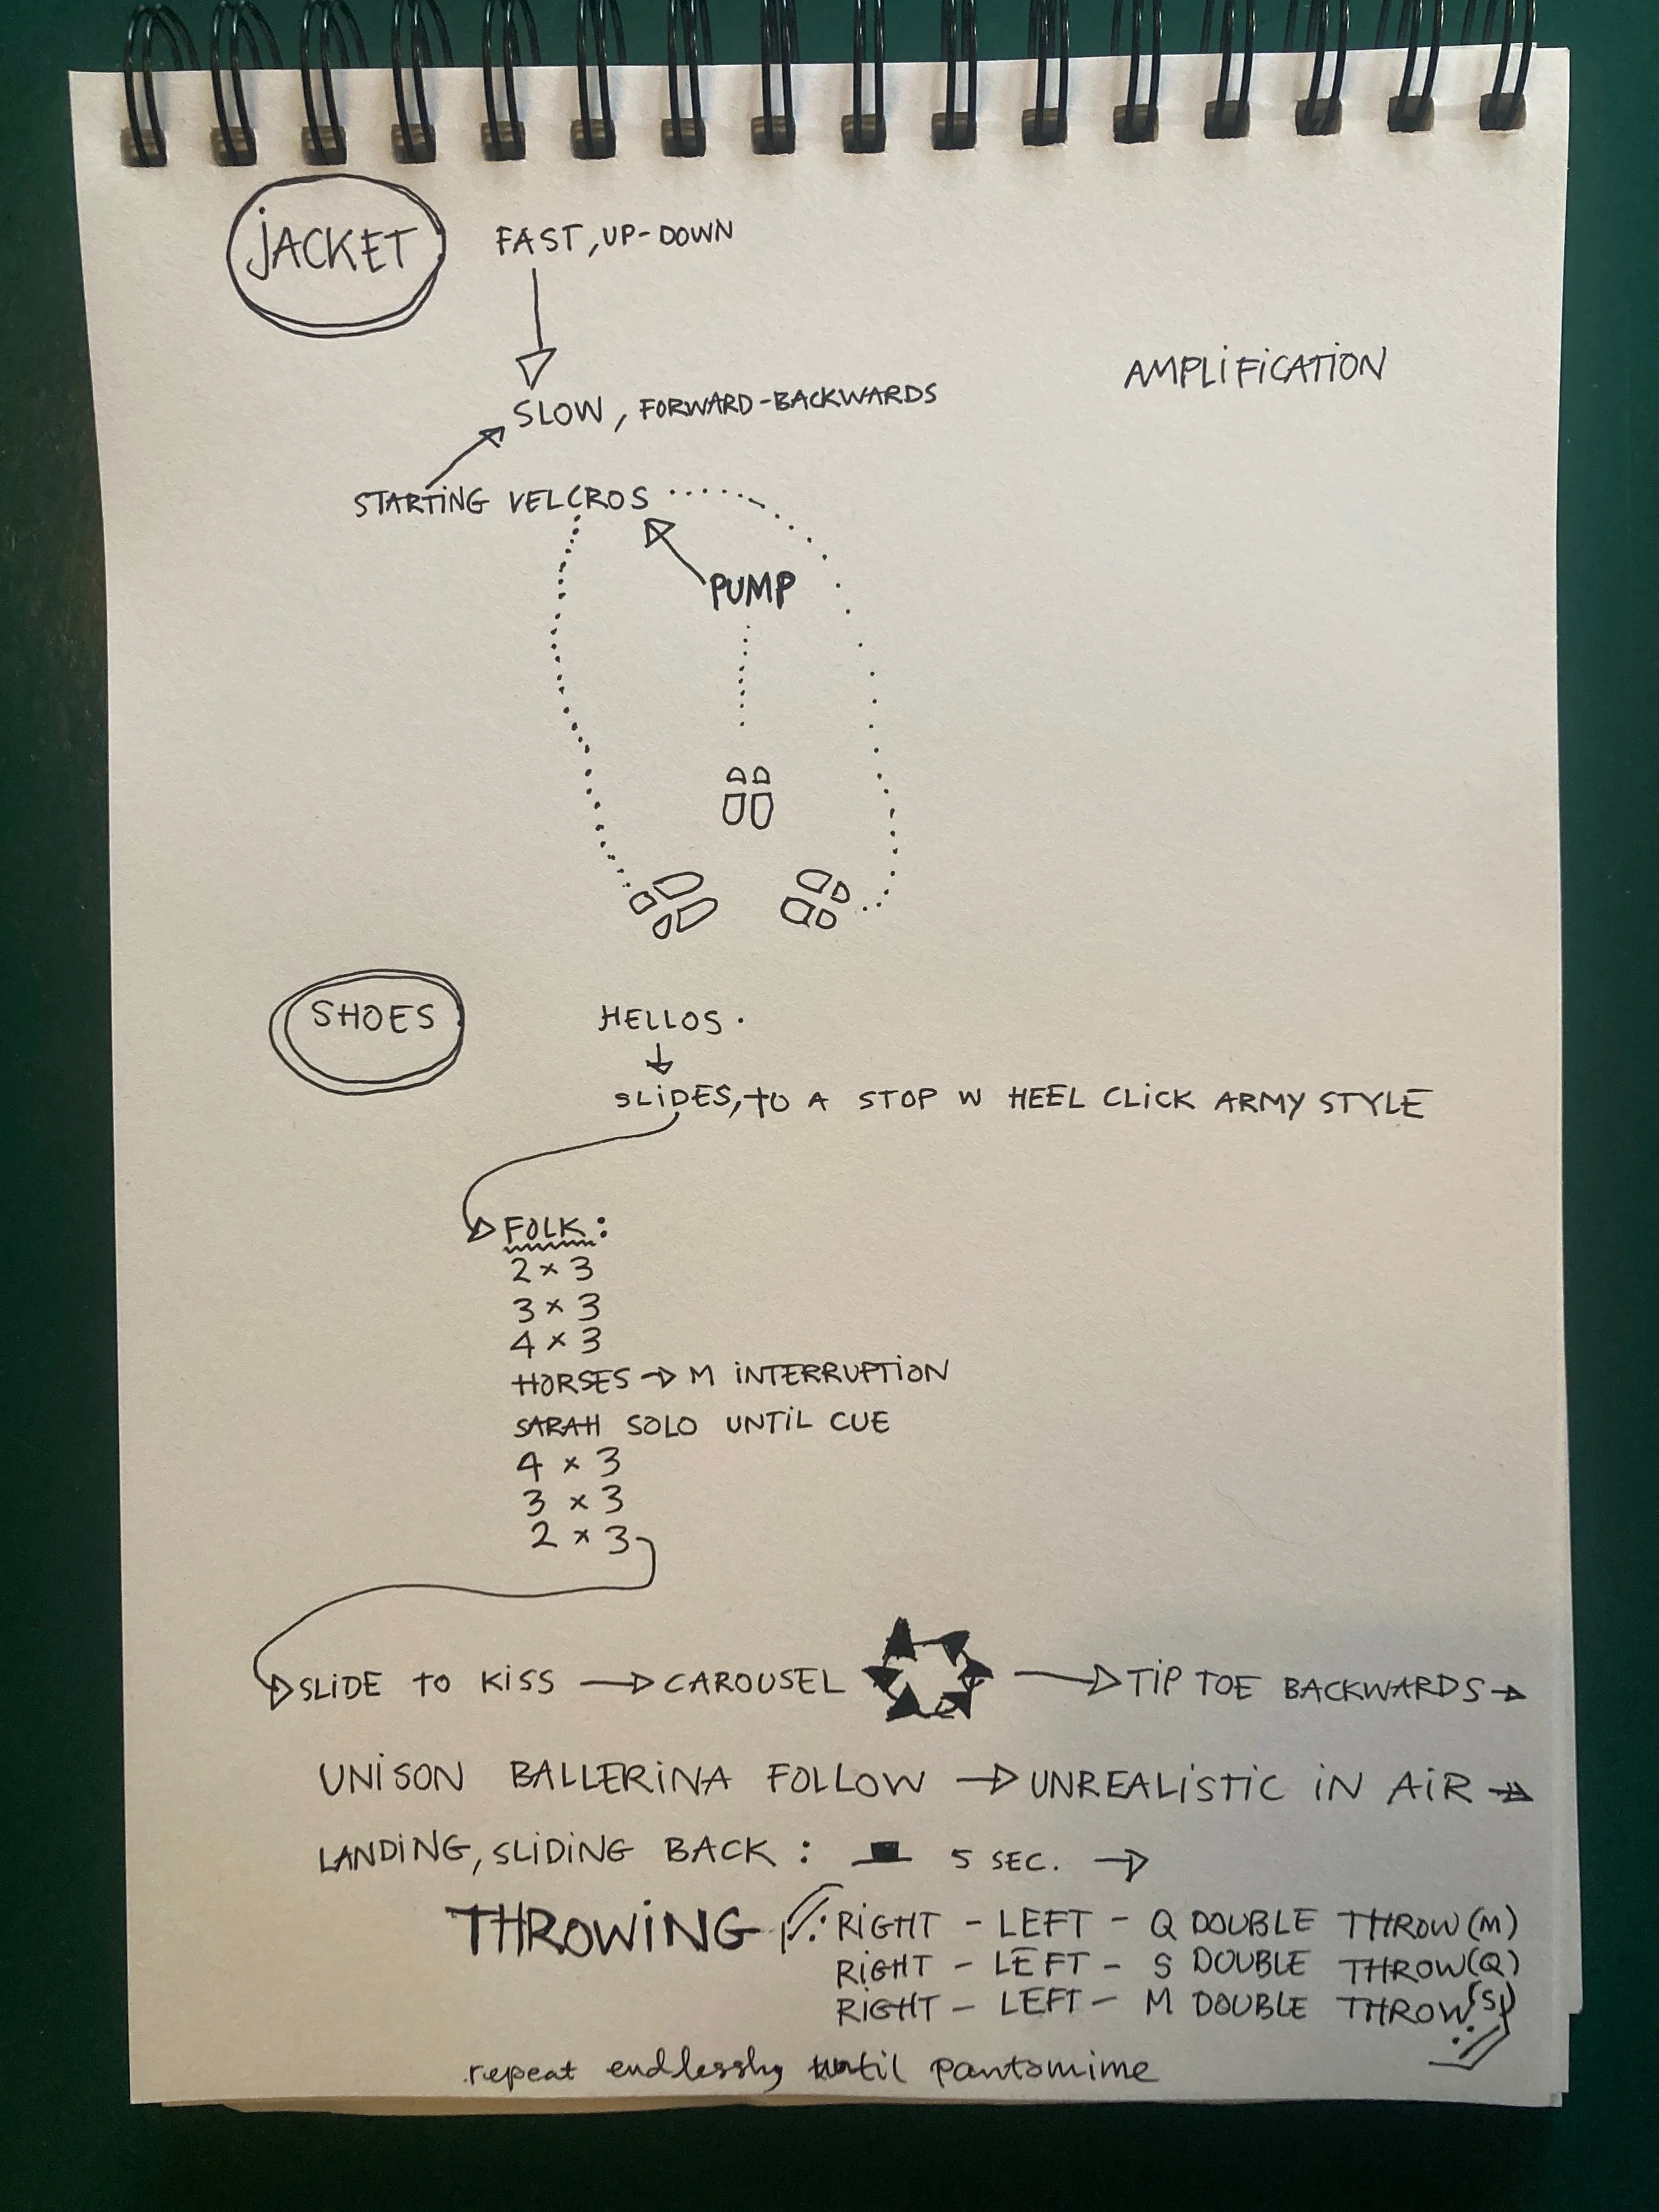 JACKET FAST, UP-DOWN
AMPLIFICATION
SLOW, FORWARD-BACKWARDS
STARTING VELCROS
PUMP
SHOES HELLOS.
SLIDES, TO A STOP W HEEL CLICK ARMY STYLE
FOLK:
2 × 3
3 × 3
4 × 3
HORSES → M INTERRUPTION
SARAH SOLO UNTIL CUE
4 × 3
3 × 3
2 × 3
SLIDE TO KISS → CAROUSEL → TIP TOE BACKWARDS →
UNISON BALLERINA FOLLOW → UNREALISTIC IN AIR →
LANDING, SLIDING BACK: 5 SEC. →
THROWING RIGHT - LEFT - Q DOUBLE THROW (M)
RIGHT - LEFT - S DOUBLE THROW (Q)
RIGHT - LEFT - M DOUBLE THROW (S)
repeat endlessly until pantomime